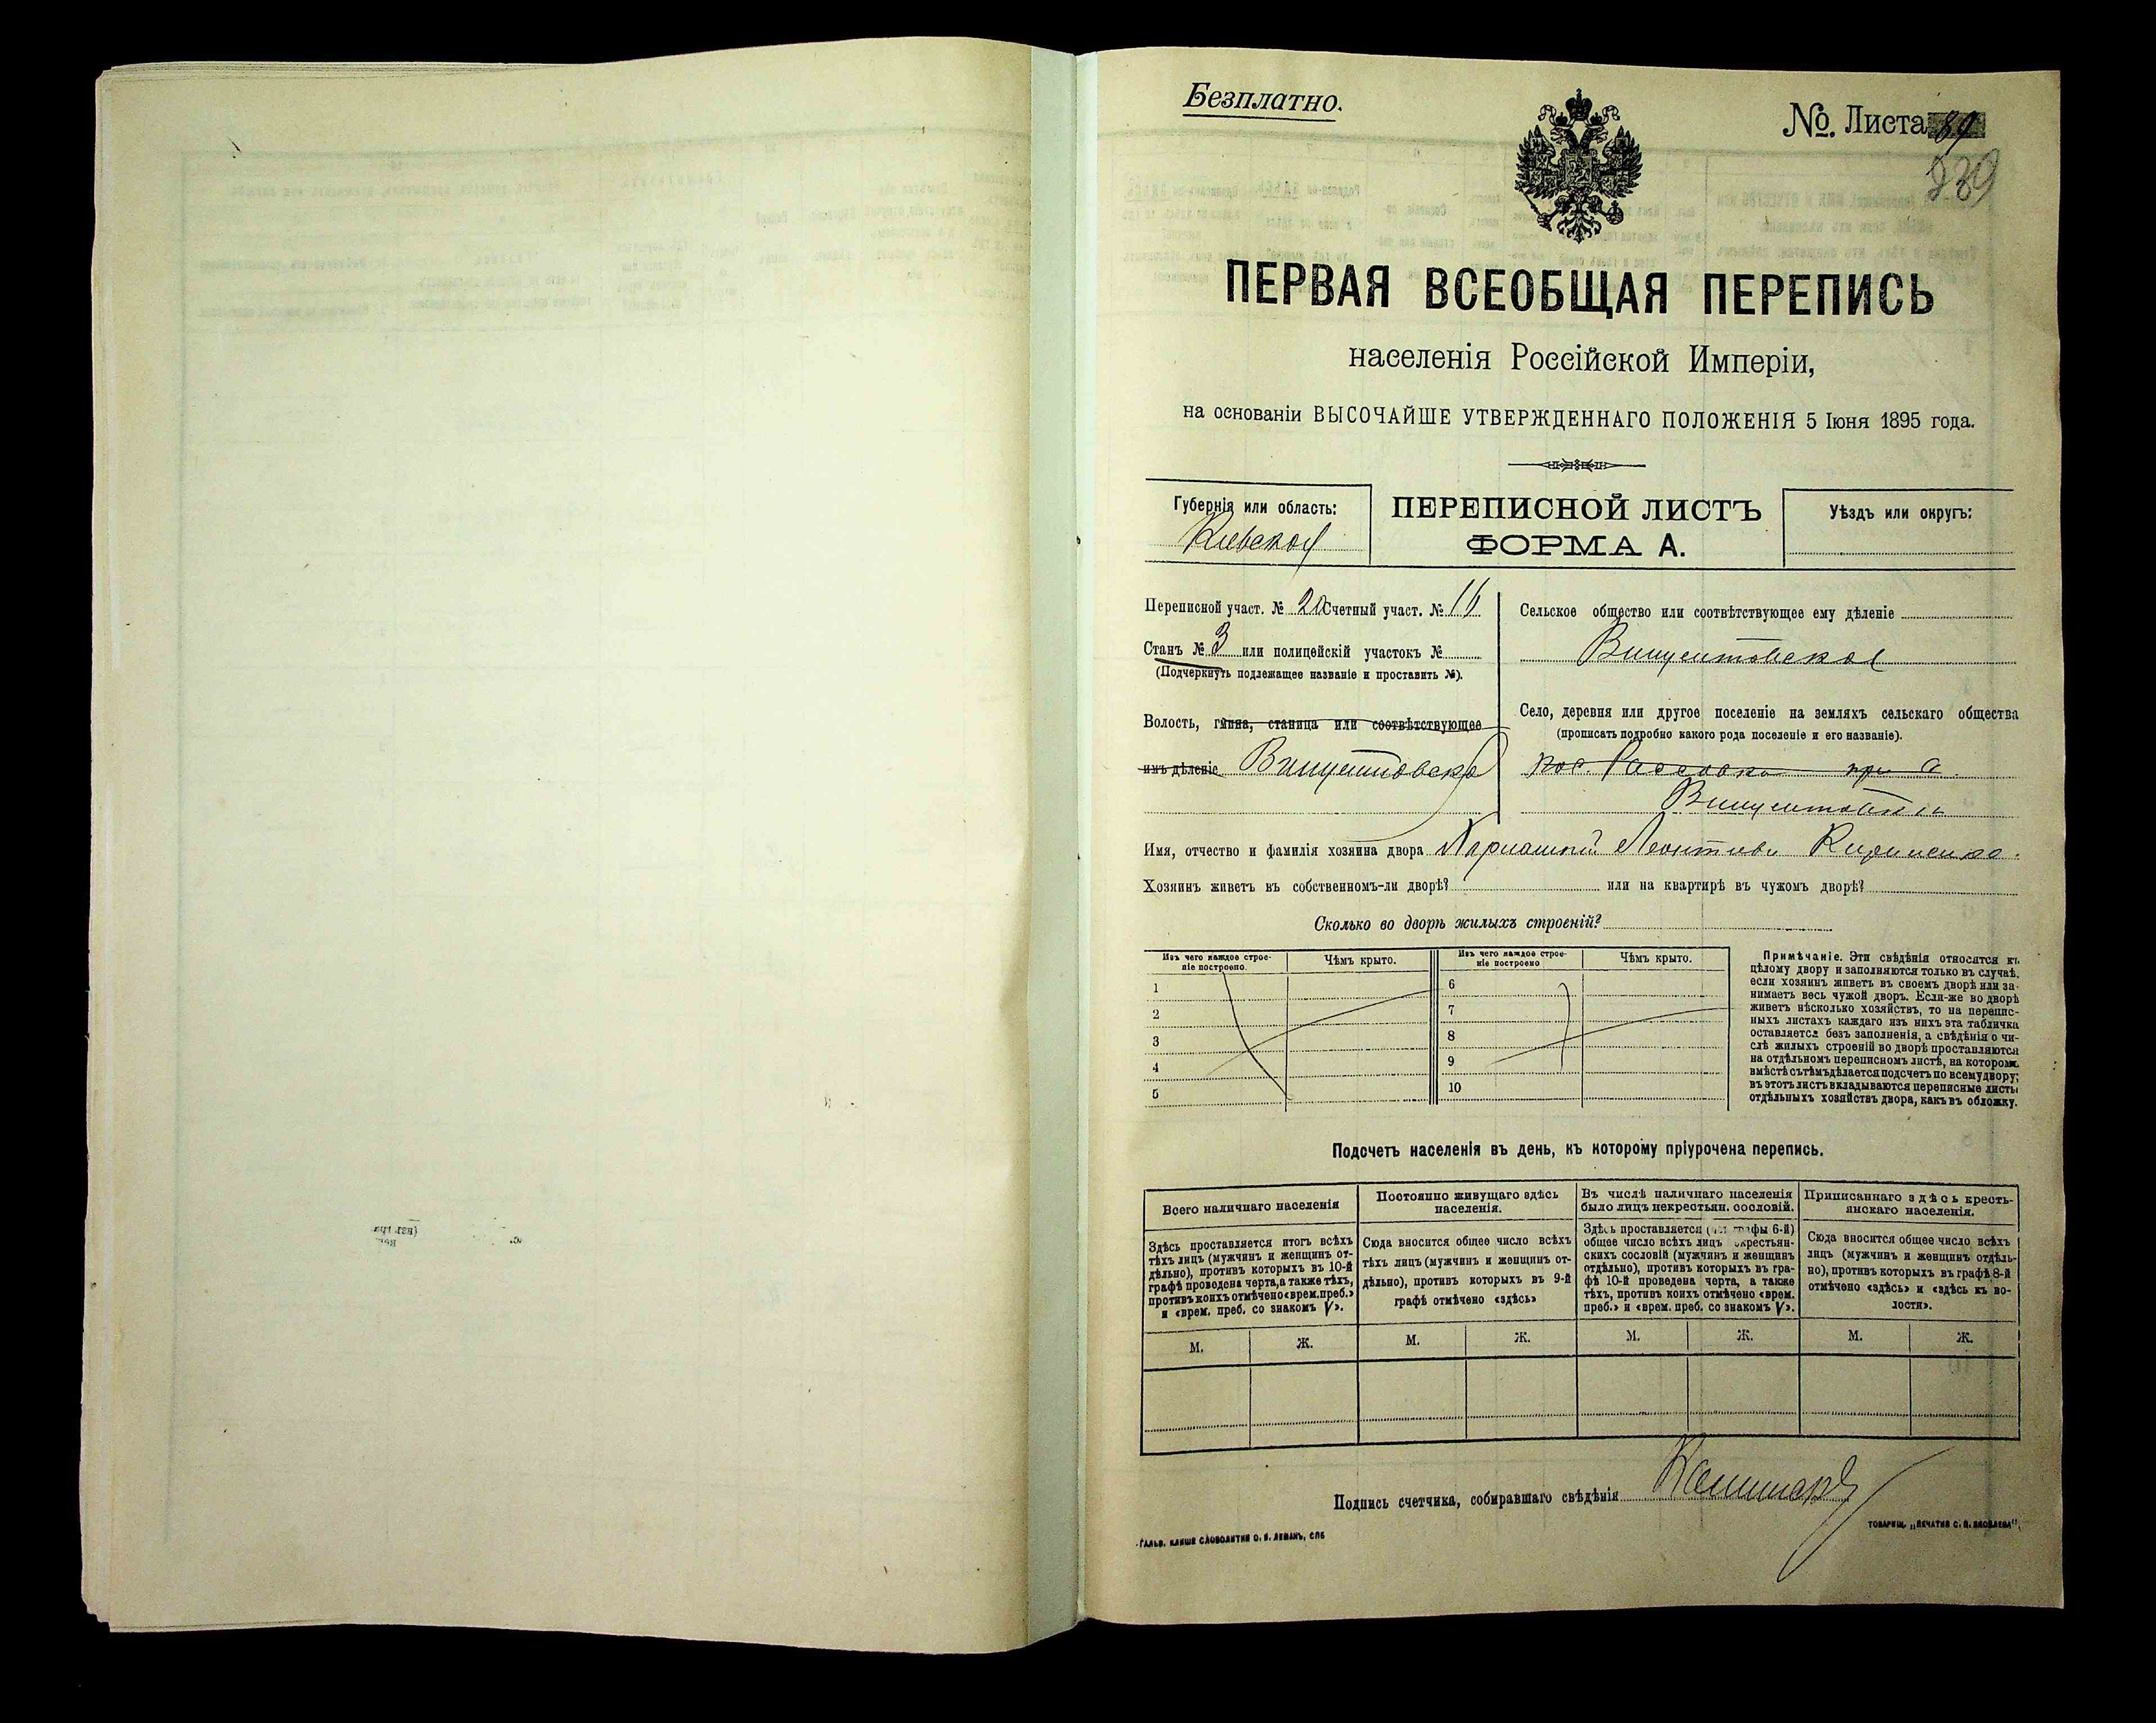 Безплатно.
№. Листа 89
239
ПЕРВАЯ ВСЕОБЩАЯ ПЕРЕПИСЬ
населенія Россійской Имперіи,
на основаніи ВЫСОЧАЙШЕ УТВЕРЖДЕННАГО ПОЛОЖЕНІЯ 5 Іюня 1895 года.
Губернія или область:
Кіевская
ПЕРЕПИСНОЙ ЛИСТЪ
ФОРМА А.
Уѣздъ или округъ:
Переписной участ. № 20 Счетный участ. №
Станъ № 3 или полицейскій участокъ №
(Подчеркнуть подлежащее названіе и проставить №).
Волость, гмина, станица или соотвѣтствующее
имъ дѣленіе Винцентовская
Сельское общество или соотвѣтствующее ему дѣленіе
Винцентовское
Село, деревня или другое поселеніе на земляхъ сельскаго общества
(прописать подробно какого рода поселеніе и его названіе).
пос. при
Имя, отчество и фамилія хозяина двора Леонтіевъ Кириченко.
Хозяинъ живетъ въ собственномъ-ли дворѣ? или на квартирѣ въ чужомъ дворѣ?
Сколько во дворѣ жилыхъ строеній?
Изъ чего каждое строе-
ніе построено.
Чѣмъ крыто.
Изъ чего каждое строе-
ніе построено
Чѣмъ крыто.
1
2
3
4
5
6
7
8
9
10
Примѣчаніе. Эти свѣдѣнія относятся къ
цѣлому двору и заполняются только въ случаѣ,
если хозяинъ живетъ въ своемъ дворѣ или за-
нимаетъ весь чужой дворъ. Если-же во дворѣ
живетъ нѣсколько хозяйствъ, то на перепис-
ныхъ листахъ каждаго изъ нихъ эта табличка
оставляется безъ заполненія, а свѣдѣнія о чи-
слѣ жилыхъ строеній во дворѣ проставляются
на отдѣльномъ переписномъ листѣ, на которомъ
вмѣстѣ съ тѣмъ дѣлается подсчетъ по всему двору;
въ этотъ листъ вкладываются переписные листы
отдѣльныхъ хозяйствъ двора, какъ въ обложку.
Подсчетъ населенія въ день, къ которому пріурочена перепись.
Всего наличнаго населенія
Здѣсь проставляется итогъ всѣхъ
тѣхъ лицъ (мужчинъ и женщинъ от-
дѣльно), противъ которыхъ въ 10-й
графѣ проведена черта, а также тѣхъ,
противъ коихъ отмѣчено «врем. преб.»
и «врем. преб. со знакомъ V».
Постоянно живущаго здѣсь
населенія.
Сюда вносится общее число всѣхъ
тѣхъ лицъ (мужчинъ и женщинъ от-
дѣльно), противъ которыхъ въ 9-й
графѣ отмѣчено «здѣсь»
Въ числѣ наличнаго населенія
было лицъ некрестьян. сословій.
Здѣсь проставляется графы 6-й)
общее число всѣхъ лицъ некрестьян-
скихъ сословій (мужчинъ и женщинъ
отдѣльно), противъ которыхъ въ гра-
фѣ 10-й проведена черта, а также
тѣхъ, противъ коихъ отмѣчено «врем.
преб.» и «врем. преб. со знакомъ V».
Приписаннаго здѣсь кресть-
янскаго населенія.
Сюда вносится общее число всѣхъ
лицъ (мужчинъ и женщинъ отдѣль-
но), противъ которыхъ въ графѣ 8-й
отмѣчено «здѣсь» и «здѣсь къ во-
лости».
М. Ж. М. Ж. М. Ж. М. Ж.
Подпись счетчика, собиравшаго свѣдѣнія
ГАЛЬВ. КЛИШЕ СЛОВОЛИТНИ О. И. ЛЕМАНЪ, СПБ
ТОВАРИЩ. „ПЕЧАТНЯ С. П. ЯКОВЛЕВА“.